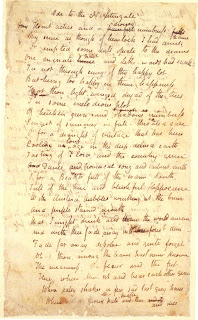 Ode to the Nightingale
Heart aches and a painful numbness falls
My sense as though of hemlock I had drunk
Or emptied some dull opiate to the drains
One minute since and Lethe-wards had sunk
'Tis not through envy of thy happy lot
But being too happy in thine happiness
That thou light winged dryad of the trees
In some melodious plot
Of beechen green and shadows numberless
Singest of summer in full throated ease
O for a draught of vintage that has been
Cooling an age in the deep delved earth
Tasting of Flora and the country green
And Dance, and song and sunburnt mirth
O for a Beaker full of the warm South
Full of the true and blushful Hippocrene
With cluster'd bubbles winking at the brim
And purple stained mouth
That I might drink and leave the world unseen
And with thee fade away into the forest dim
Fade far away dissolve and quite forget
What thou among the leaves hast never known
The weariness the fever and the fret
Here where Men sit and hear each other groan
Where palsy shakes a few sad last grey hairs
Where grows pale and thin and